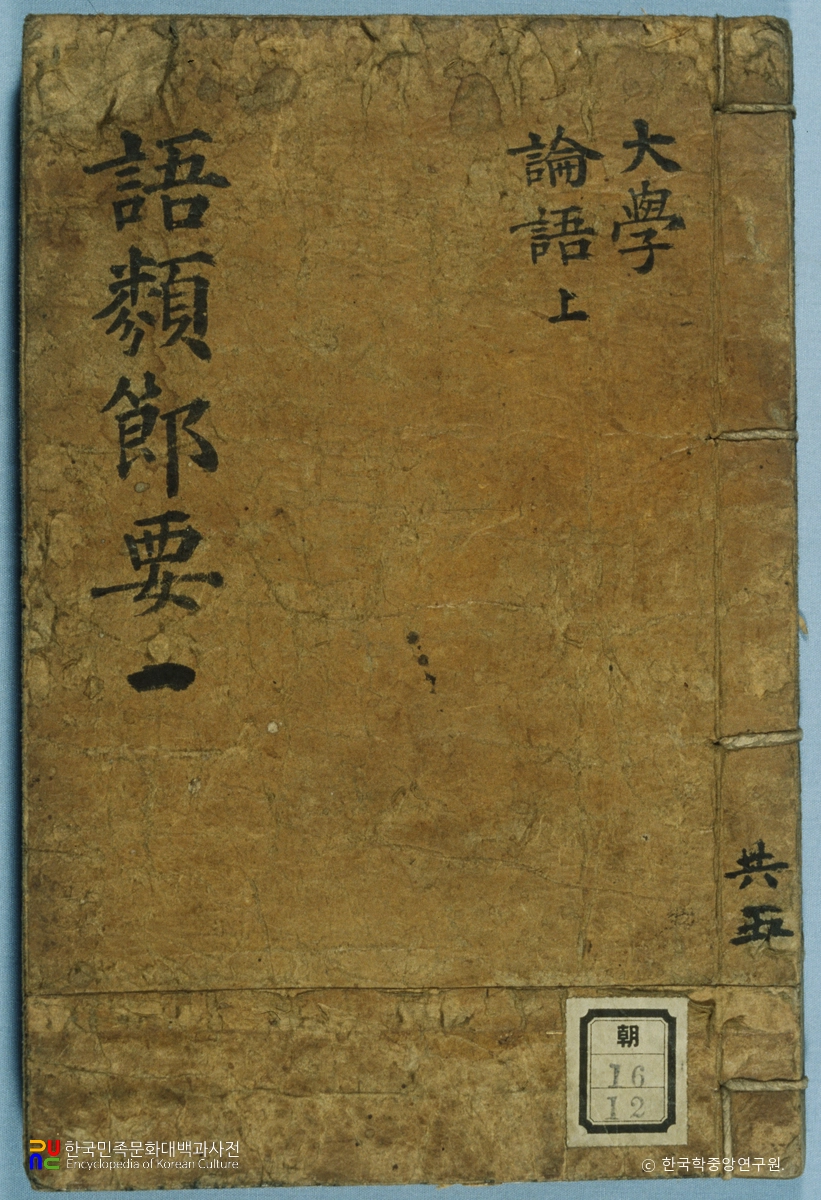 大學
論語 上
語類節要 一
共五
朝
16
12
한국민족문화대백과사전
Encyclopedia of Korean Culture
© 한국학중앙연구원.